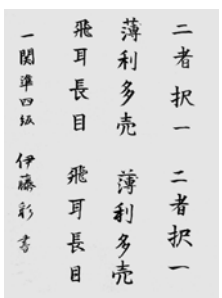 二者択一 二者択一
薄利多売 薄利多売
飛耳長目 飛耳長目
一関準四級 伊藤彩書